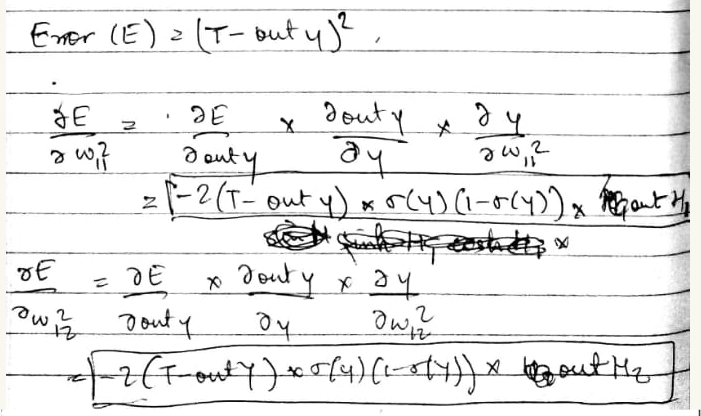 Error (E) = (T - out y)² .
∂E/∂w₁₁² = ∂E/∂out y × ∂out y/∂y × ∂y/∂w₁₁²
= -2(T - out y) × σ(y)(1-σ(y)) × out H₁
×
∂E/∂w₁₂² = ∂E/∂out y × ∂out y/∂y × ∂y/∂w₁₂²
= -2(T-out y) × σ(y)(1-σ(y)) × out H₂